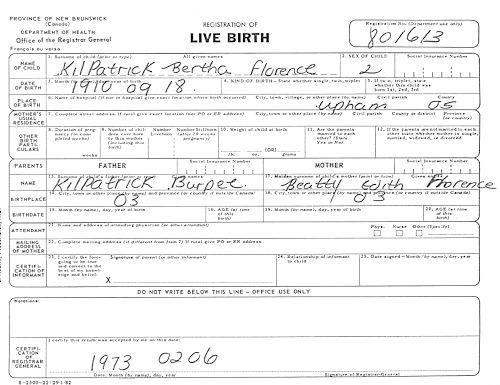 PROVINCE OF NEW BRUNSWICK
(Canada)
DEPARTMENT OF HEALTH
Office of the Registrar General
Français au verso
REGISTRATION OF
LIVE BIRTH
Registration No. (Department use only)
801613
NAME OF CHILD
1. Surname of child (print or type) All given names
KilPatrick Bertha Florence
2. SEX OF CHILD
2
Social Insurance Number
DATE OF BIRTH
3. Month (by name), day, year of birth
1910 09 18
4. KIND OF BIRTH - State whether single, twin, triplet
5. If twin, triplet, state whether this child was born 1st, 2nd, 3rd
PLACE OF BIRTH
6. Name of hospital (if not in hospital give exact location where birth occurred) City, town, village, or other place (by name) Civil parish County
Upham 05
MOTHER'S USUAL RESIDENCE
7. Complete street address. If rural give exact location (not PO or RR address) City, town or other place (by name) Civil parish County or district Province (or country)
OTHER BIRTH PARTICULARS
weeks
10. Weight of child at birth
lb. oz. grams
11. Are the parents married to each other? (State Yes or No)
12. If the parents are not married to each other state whether mother is single, married, widowed, or divorced
PARENTS
FATHER
Social Insurance Number
MOTHER
Social Insurance Number
NAME
KilPatrick Burpee
Beatty Edith Florence
BIRTHPLACE
03
03
BIRTHDATE
15. Month (by name), day, year of birth
16. AGE (at time of this birth)
19. Month (by name), day, year of birth
20. AGE (at time of this birth)
ATTENDANT
21. Name and address of attending physician (or other attendant)
Phys. Nurse Other (Specify)
MAILING ADDRESS OF MOTHER
22. Complete mailing address (if different from item 7) If rural give PO or RR address
CERTIFICATION OF INFORMANT
23. I certify the foregoing to be true and correct to the best of my knowledge and belief.
Signature of parent (or other informant)
X
24. Relationship of informant to child
25. Date signed - Month (by name), day, year
DO NOT WRITE BELOW THIS LINE - OFFICE USE ONLY
Notations:
CERTIFICATION OF REGISTRAR GENERAL
I certify this return was accepted by me on this date:
1973 0206
Date: Month (by name), day, year
Signature of Registrar-General